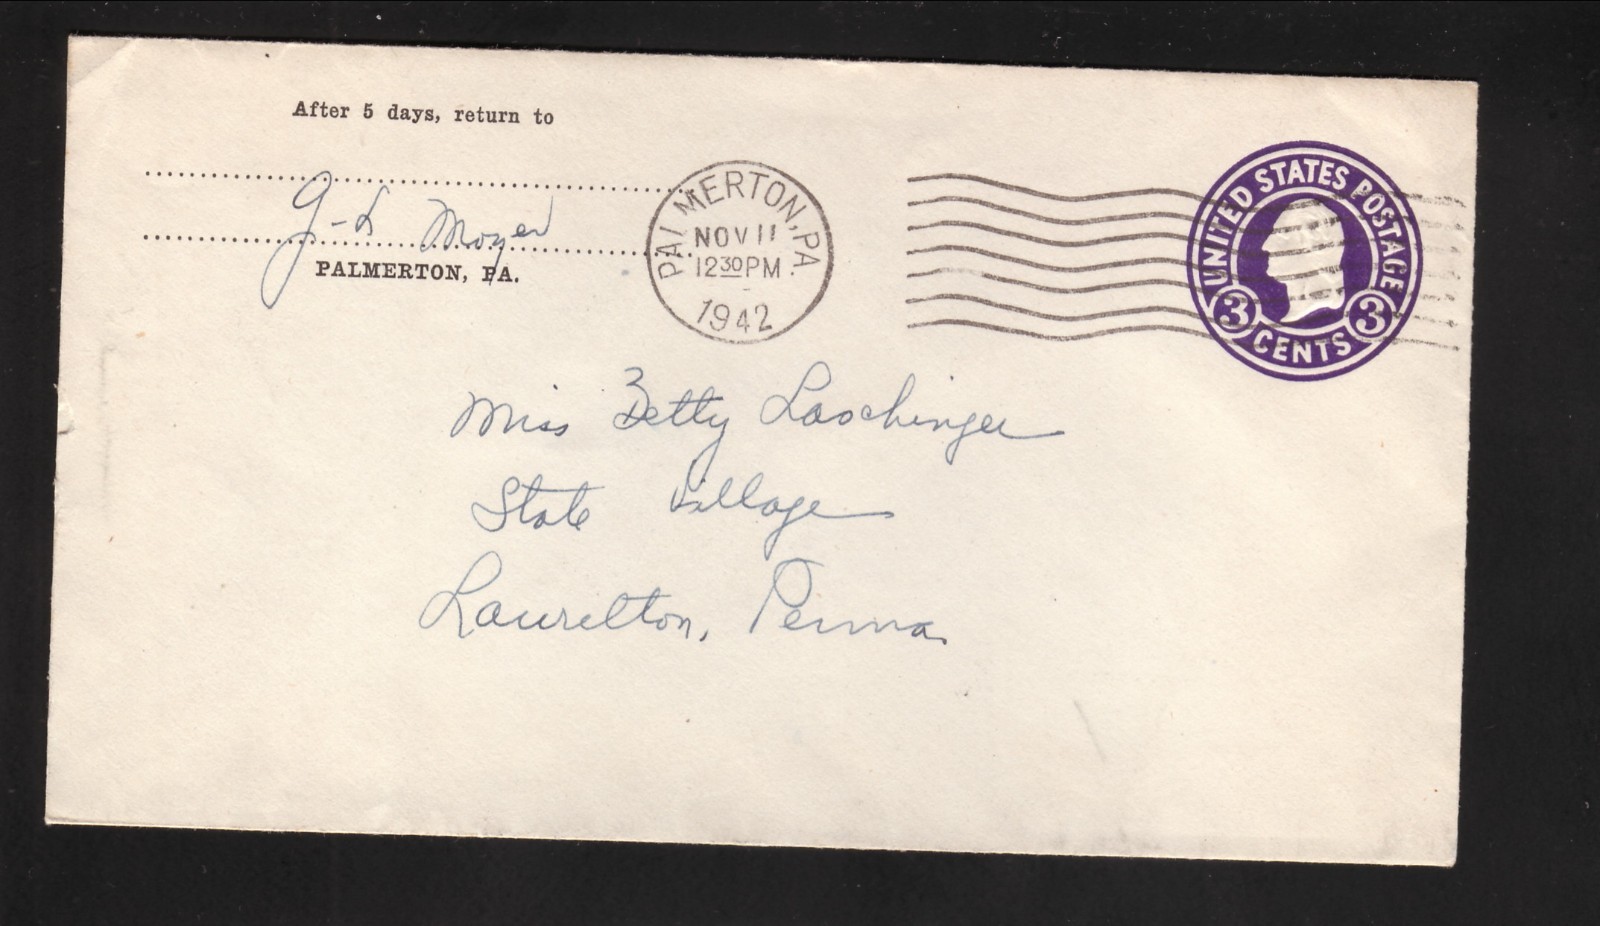 After 5 days, return to
G-L Moyer
PALMERTON, PA.
PALMERTON, PA.
NOV 11
12 30 PM
1942
UNITED STATES POSTAGE
3 CENTS 3
Miss Betty Laschinger
State Village
Laurelton, Penna.